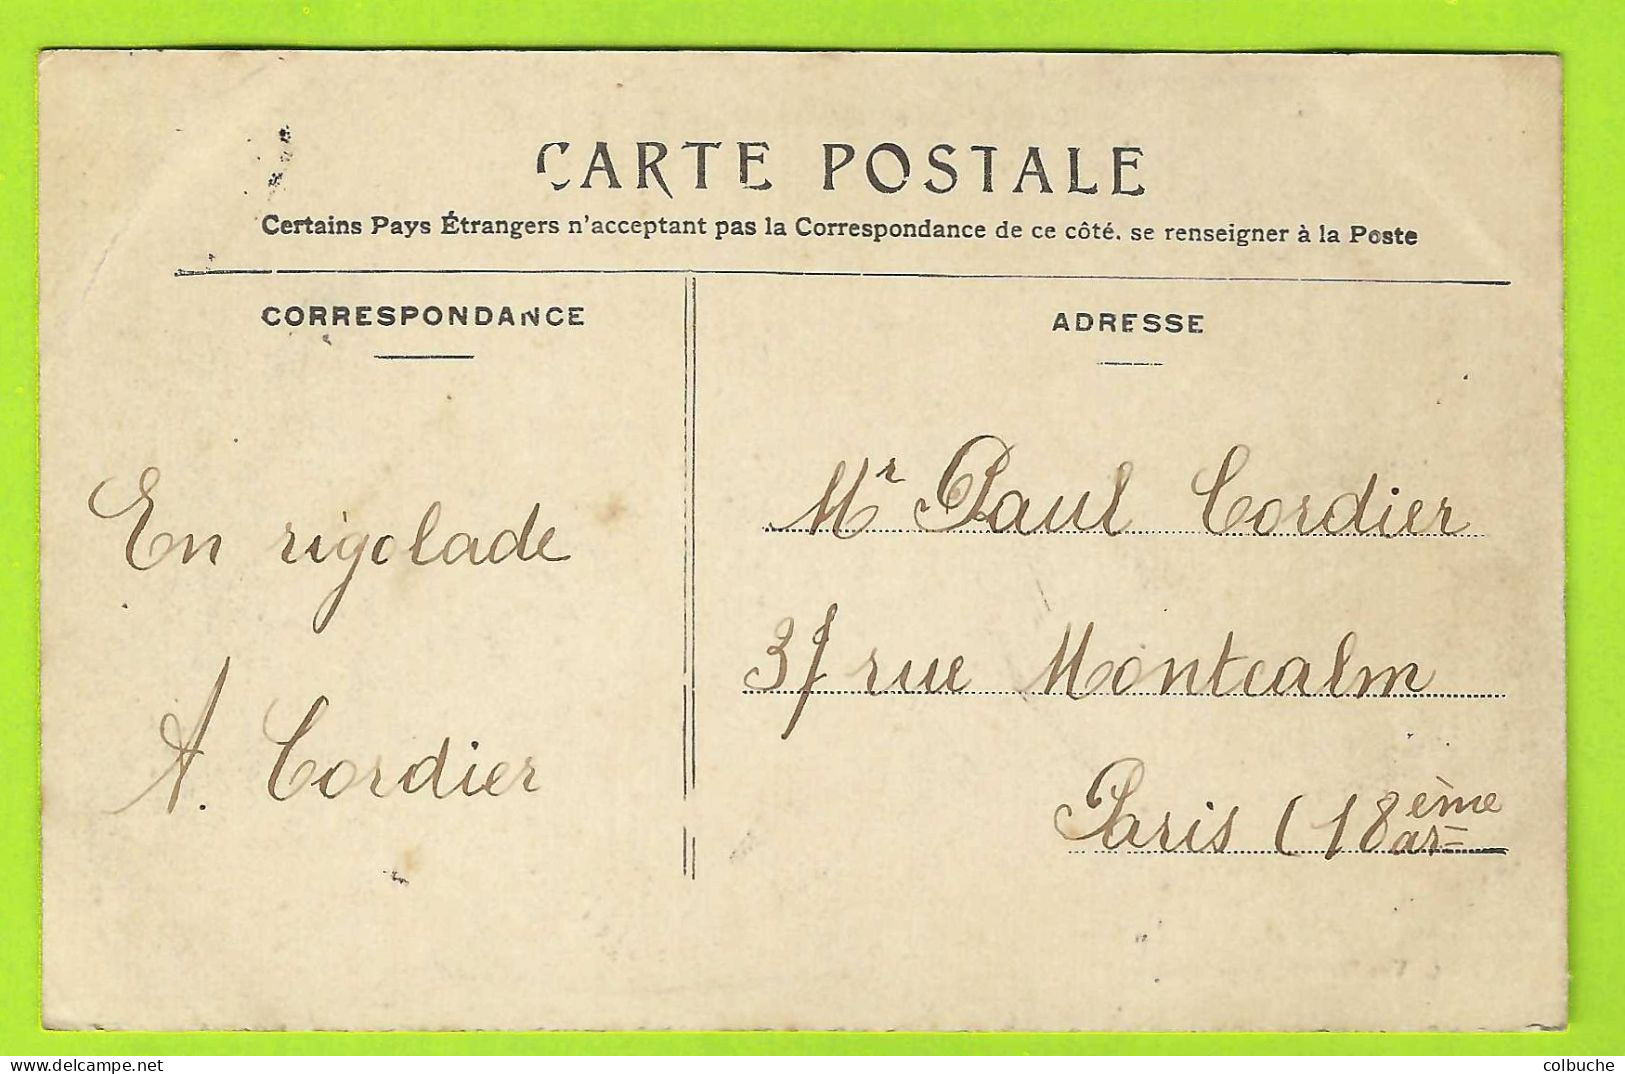 CARTE POSTALE
Certains Pays Étrangers n'acceptent pas la Correspondance de ce côté. se renseigner à la Poste
CORRESPONDANCE
En rigolade
A. Cordier
ADRESSE
Mr Paul Cordier
37 rue Montcalm
Paris (18ème ar=
delcampe.net
colbuche